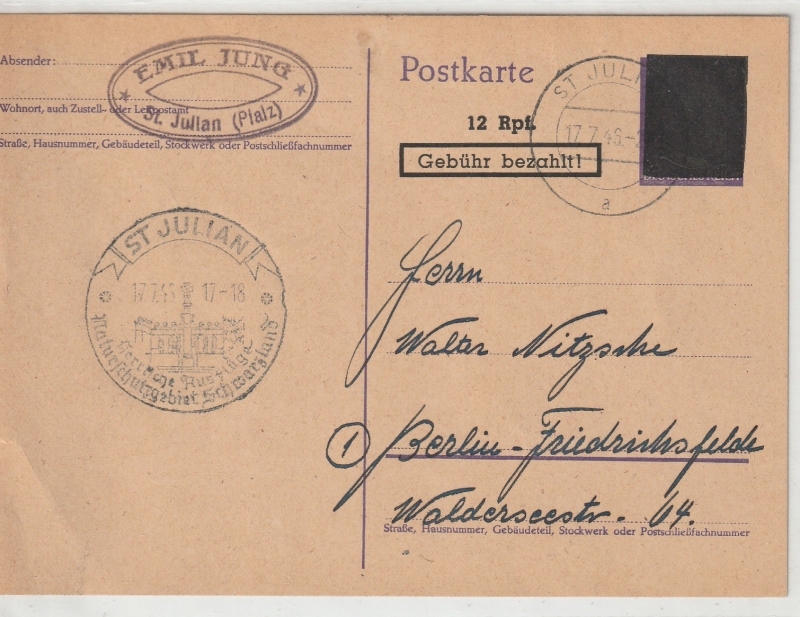 Absender:
EMIL JUNG
St. Julian (Pfalz)
Wohnort, auch Zustell- oder Leitpostamt
Straße, Hausnummer, Gebäudeteil, Stockwerk oder Postschließfachnummer
Postkarte
12 Rpf.
Gebühr bezahlt!
ST JULI
17.7.46.-
a
ST JULIAN
17.7.46 17-18
Naturschutzgebiet Schwarzland
Herrn
Walter Nitzsche
1 Berlin-Friedrichsfelde
Walderseestr. 64.
Straße, Hausnummer, Gebäudeteil, Stockwerk oder Postschließfachnummer